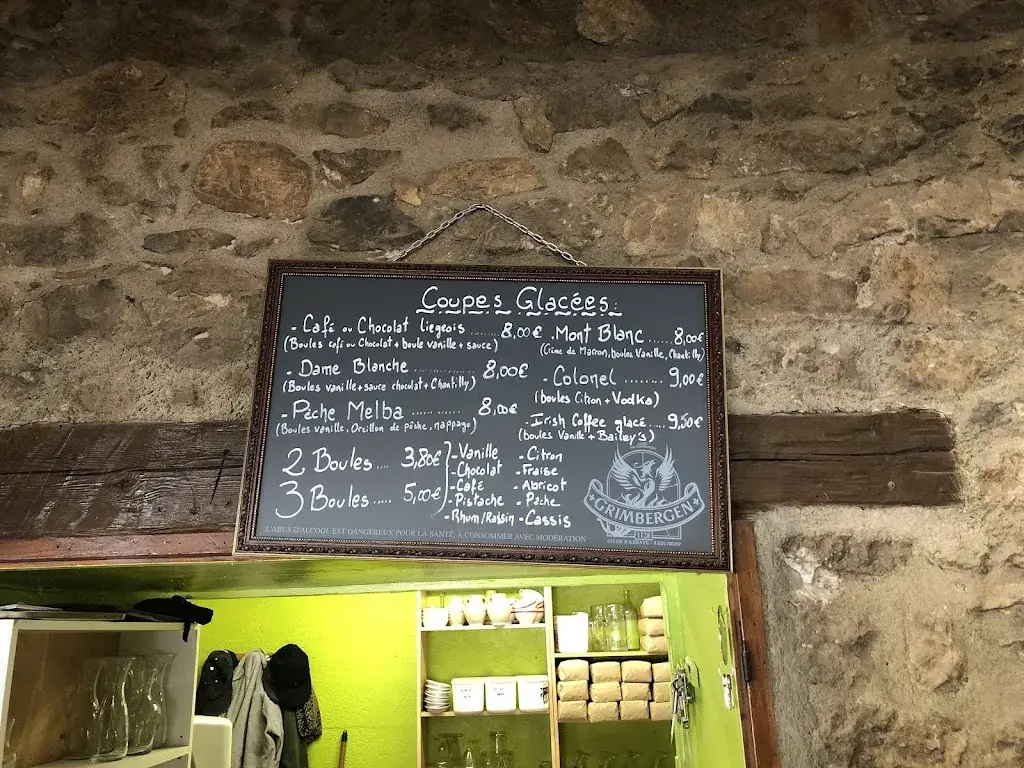 Coupes Glacées:
- Café ou Chocolat liegeois ....... 8,00€
(Boules café ou Chocolat + boule vanille + sauce)
- Dame Blanche ............... 8,00€
(Boules vanille + sauce chocolat + Chantilly)
- Pêche Melba ............ 8,00€
(Boules vanille, Oreillon de pêche, nappage)
. Mont Blanc ...... 8,00€
(Crème de Marron, boules Vanille, Chantilly)
- Colonel ........ 9,00€
(boules Citron + Vodka)
- Irish Coffee glacé .... 9,50€
(boules Vanille + Bailey's)
2 Boules .... 3,80€
3 Boules ..... 5,00€
- Vanille
- Chocolat
- Café
- Pistache
- Rhum/Raisin
- Citron
- Fraise
- Abricot
- Pêche
- Cassis
GRIMBERGEN
1128
L'ABUS D'ALCOOL EST DANGEREUX POUR LA SANTÉ, À CONSOMMER AVEC MODÉRATION